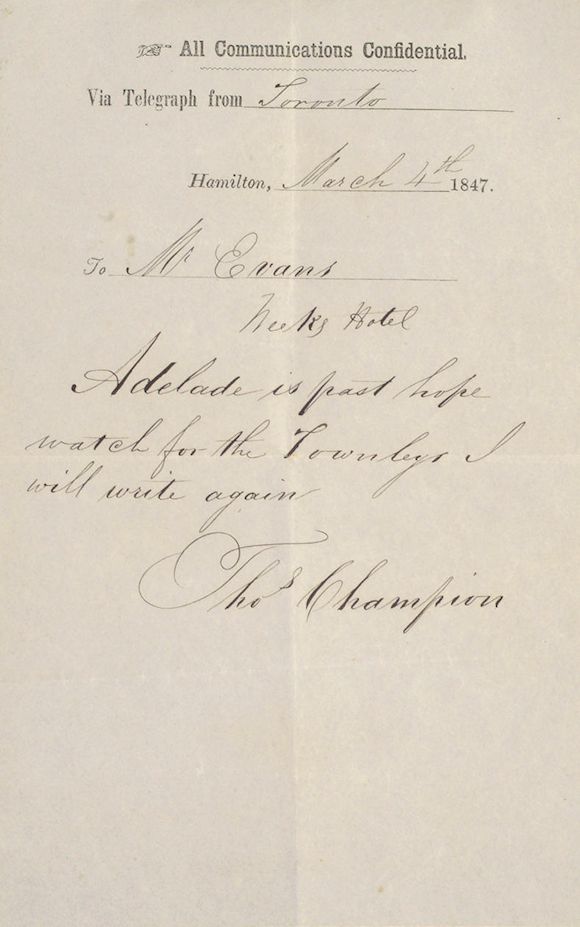 All Communications Confidential.
Via Telegraph from Toronto
Hamilton, March 4th 1847.
To Mr Evans
Weeks Hotel
Adelade is past hope
watch for the Townleys I
will write again
Thos Champion